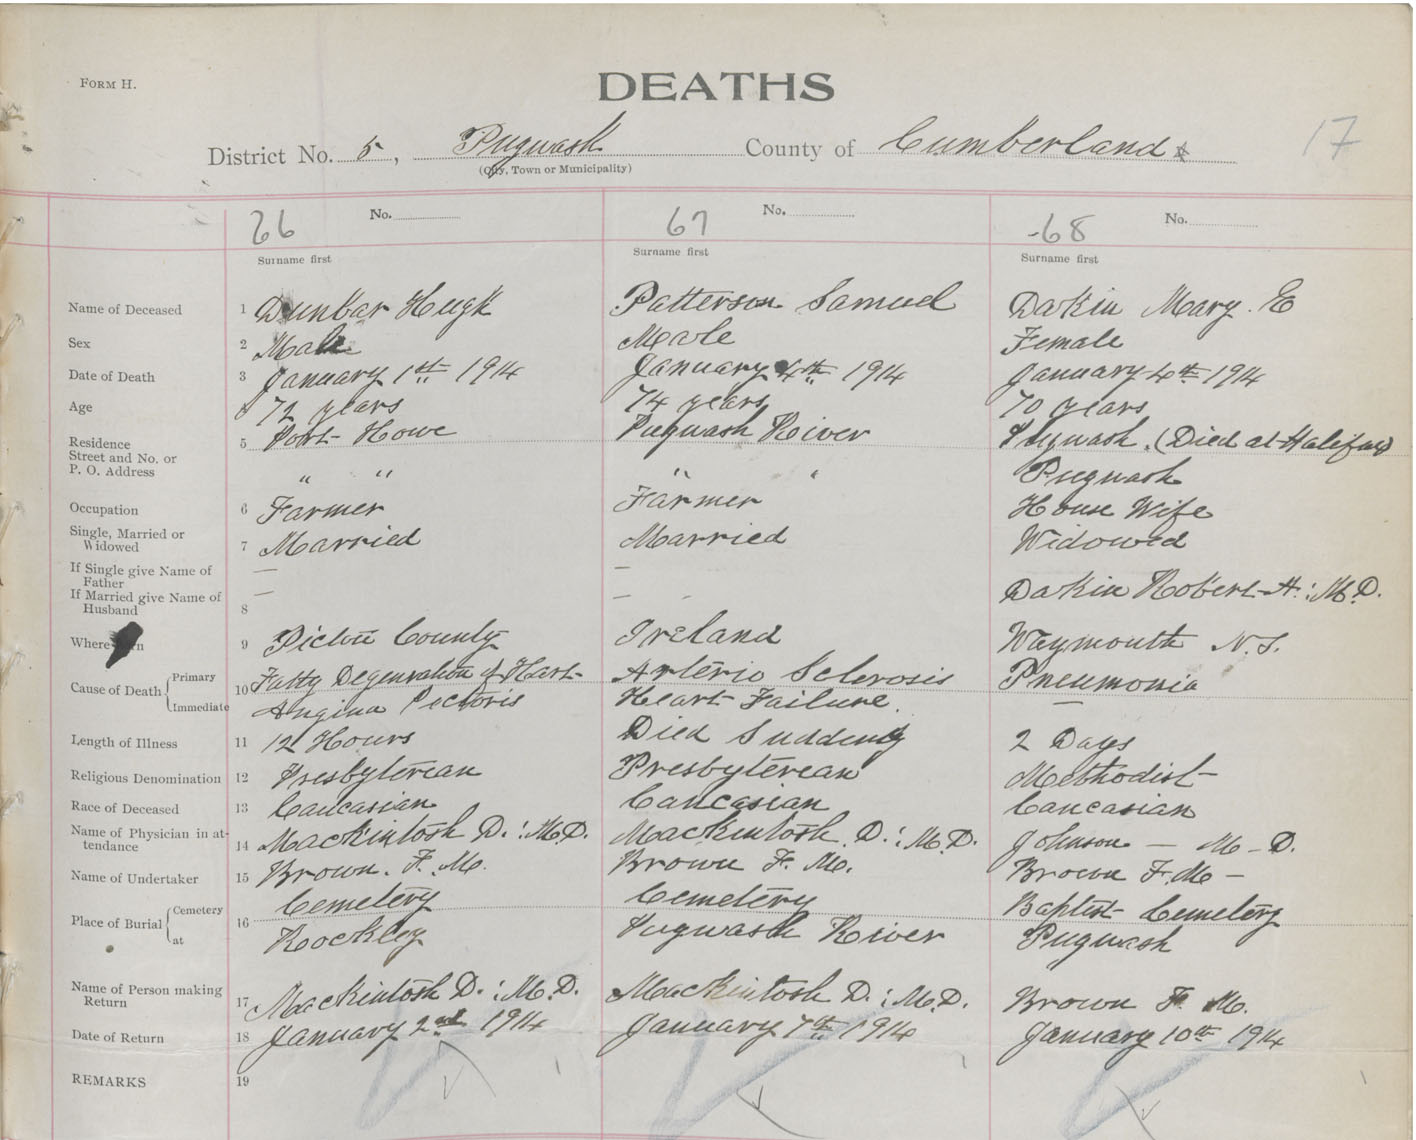 FORM H.
DEATHS
17
District No. 5, Pugwash County of Cumberland
(City, Town or Municipality)
66 No. 67 No. 68 No.
Surname first Surname first Surname first
Name of Deceased 1 Dunbar Hugh Patterson Samuel Dakin Mary. E
Sex 2 Male Male Female
Date of Death 3 January 1st 1914 January 4th 1914 January 4th 1914
Age 4 72 years 74 years 70 years
Residence 5 Port Howe Pugwash River Pugwash. (Died at Halifax)
Street and No. or
P. O. Address " " " " Pugwash
Occupation 6 Farmer Farmer House Wife
Single, Married or
Widowed 7 Married Married Widowed
If Single give Name of
Father — —
If Married give Name of
Husband 8 — — Dakin Robert A: M.D.
Where 9 Pictou County Ireland Weymouth N.S.
Cause of Death Primary 10 Fatty Degenration of Hart Arterio Sclerosis Pneumonia
Immediate Angina Pectoris Heart Failure. —
Length of Illness 11 12 Hours Died Suddenly 2 Days
Religious Denomination 12 Presbyterean Presbyterean Methodist
Race of Deceased 13 Caucasian Caucasian Caucasian
Name of Physician in at-
tendance 14 Mackintosh D.: M.D. Mackintosh. D.: M.D. Johnson — M-D.
Name of Undertaker 15 Brown. F. M. Brown F. M. Brown F. M—
Place of Burial Cemetery 16 Cemetery Cemetery Baptist Cemetery
at Rockley Pugwash River Pugwash
Name of Person making
Return 17 Mackintosh D.: M.D. Mackintosh D.: M.D. Brown F. M.
Date of Return 18 January 2nd 1914 January 7th 1914 January 10th 1914
REMARKS 19